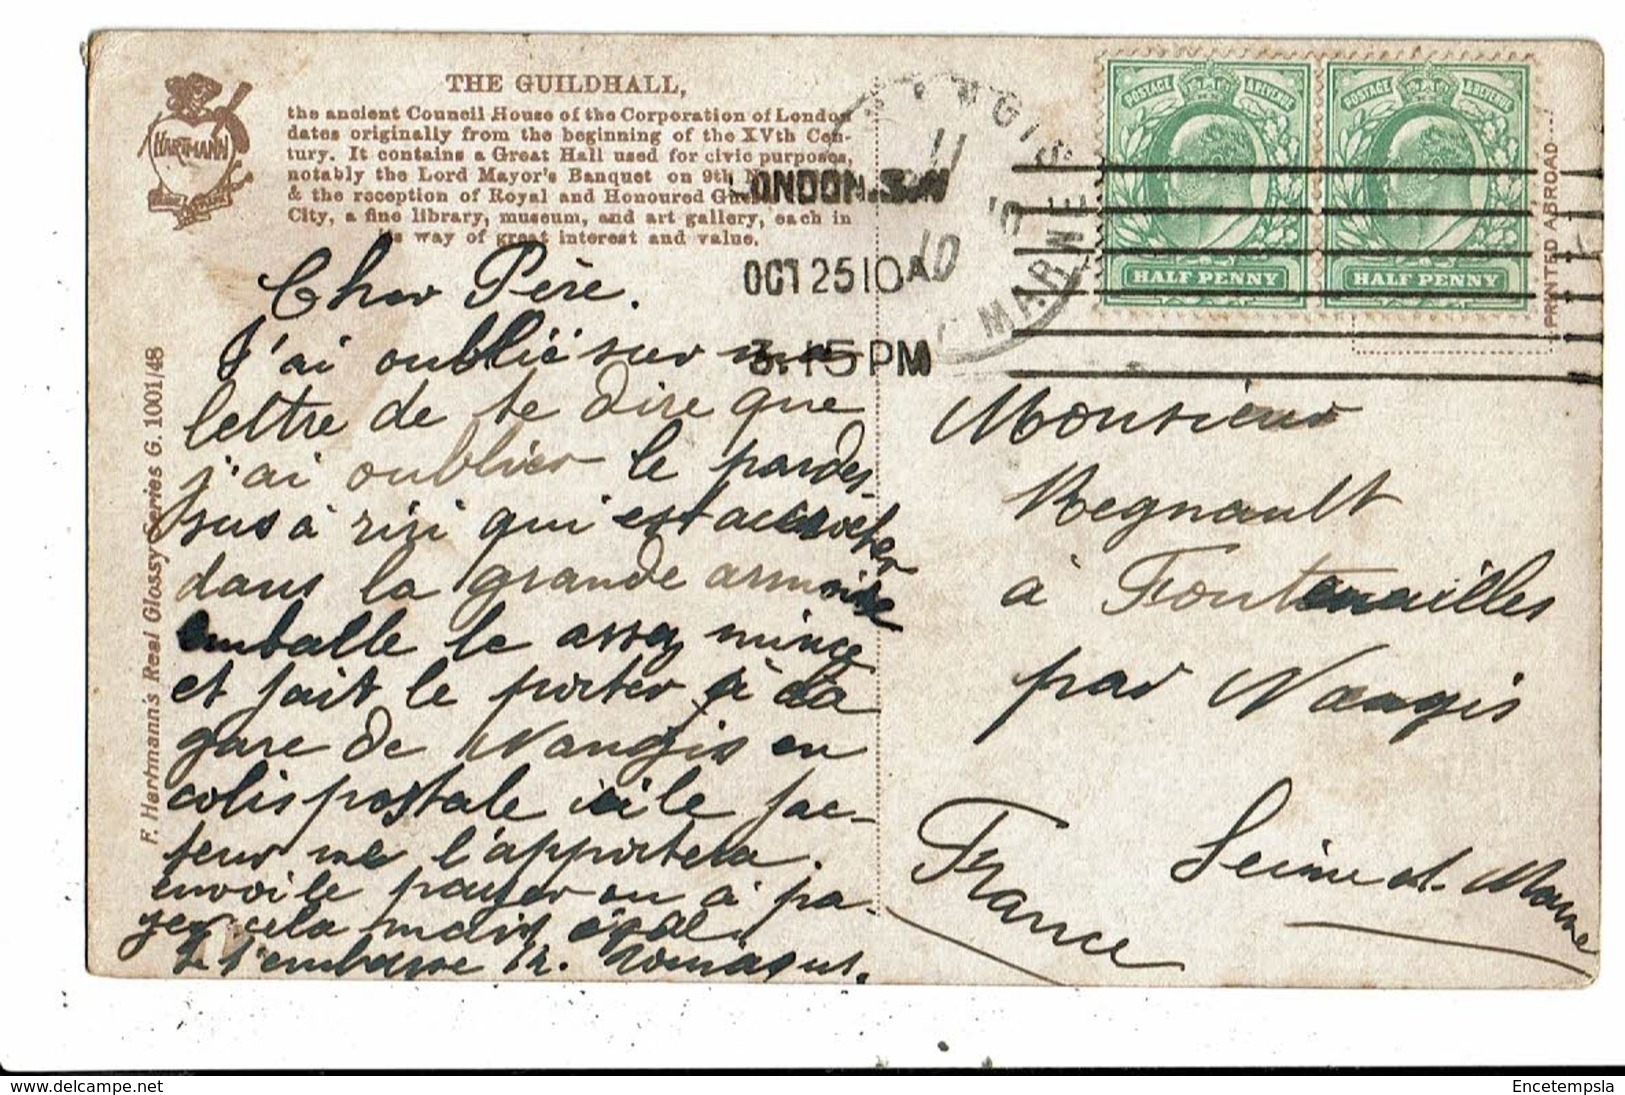 THE GUILDHALL,
the ancient Council House of the Corporation of London
dates originally from the beginning of the XVth Cen-
tury. It contains a Great Hall used for civic purposes,
notably the Lord Mayor's Banquet on 9th
& the reception of Royal and Honoured
City, a fine library, museum, and art gallery, each in
its way of great interest and value.
HARTMANN
F. Hartmann's Real Glossy Series G. 1001/48
Cher Père.
J'ai oublié sur ma
lettre de te dire que
j'ai oublier le pardes-
sus à riri qui est accrocher
dans la grande armoire
emballe le assez mince
et fait le porter à la
gare de Nangis en
colis postale ici le fac-
teur me l'apportera.
envoi le payer ou à pa-
yer cela mait égal.
Je t'embrasse
LONDON.S.W
OCT 25 10
3.15PM
11
10
NGIS
MARNE
POSTAGE & REVENUE
HALF PENNY
POSTAGE & REVENUE
HALF PENNY
PRINTED ABROAD
Monsieur
Regnault
à Fontenailles
par Nangis
Seine et. Marne
France
delcampe.net
Encetempsla